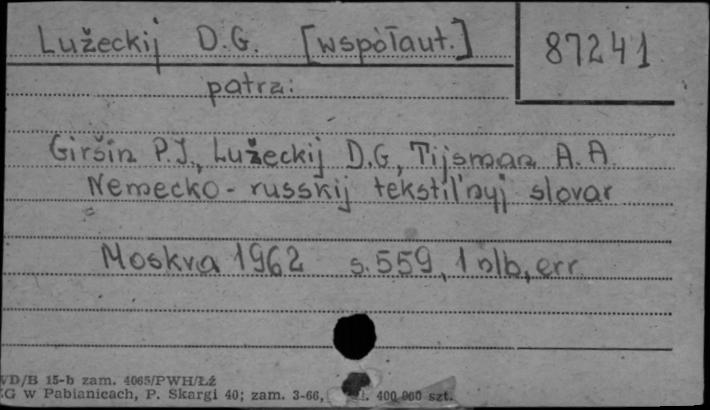 Lužeckij D.G. [współaut.] 87241
patrz:
Giršin P.J., Lužeckij D.G, Tijsman A.A.
Nemecko-russkij tekstil'nyj slovar
Moskva 1962 s.559, 1 nlb, err
VD/B 15-b zam. 4065/PWH/Łź
G w Pabianicach, P. Skargi 40; zam. 3-66, 400 000 szt.